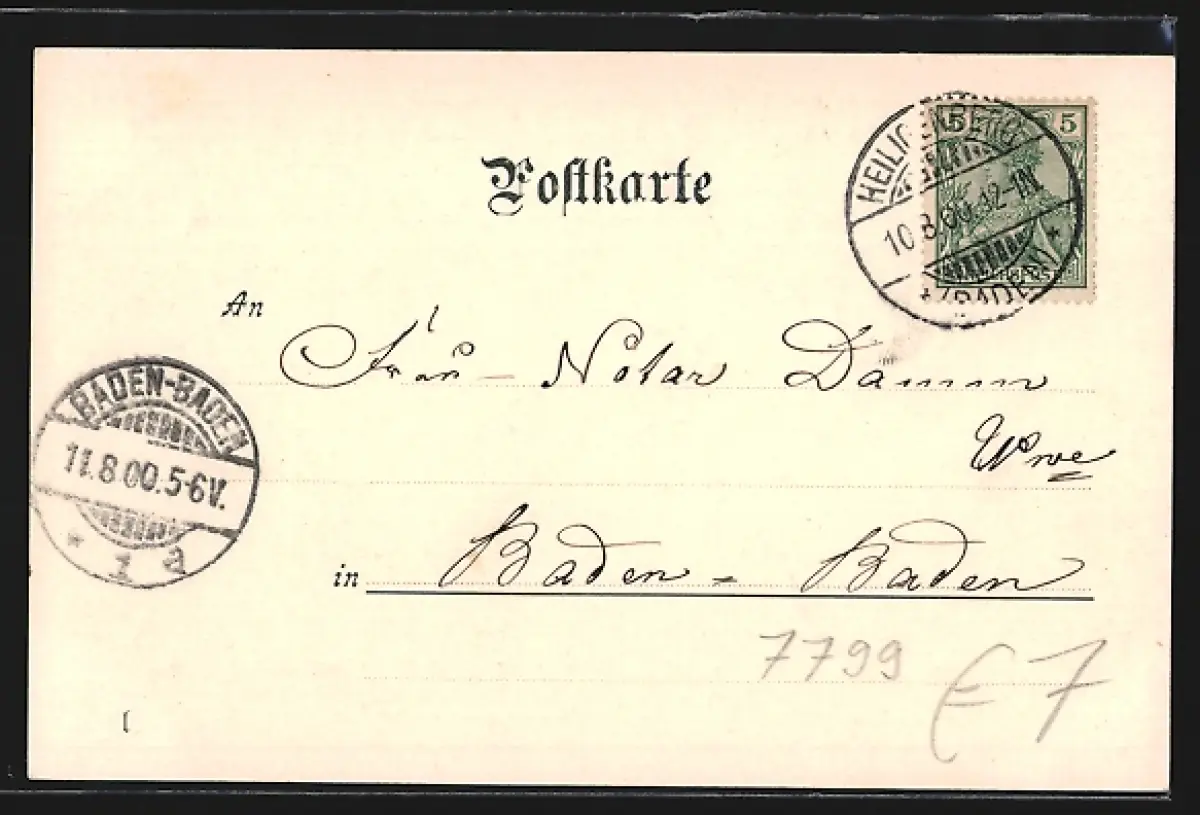 Postkarte
HEILIGENBERG
10.8.00.12-1N.
* (BADEN) *
5 5
An Frau Notar Damm
Wwe
BADEN-BADEN
11.8.00.5-6V.
* 1 a
in Baden-Baden
7799
€7